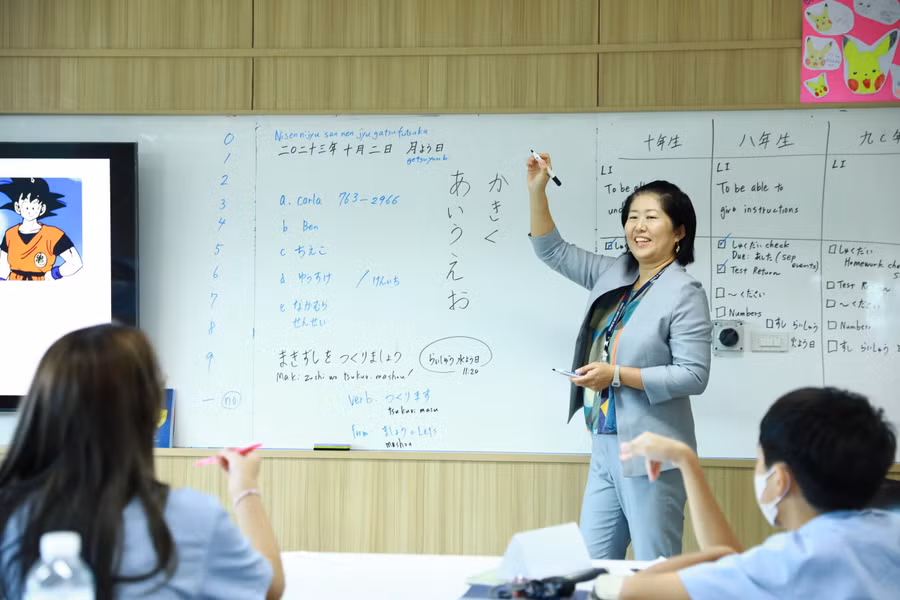 0
1
2
3
4
5
6
7
8
9
— no
Nisennijyu san nen jyu gatsu futsuka
二〇二十三年 十月二日 月よう日
getsuyoubi
a. carla 763-2966
b Ben
c ちえこ
d ゆうすけ / けんいち
e なかむら
せんせい
まきずしを つくりましょう
Maki zushi wo tsukuri mashou!
らいしゅう 水よう日
11:20
verb. つくります
tsukuri masu
form ましょう = Lets
mashou
かきく
あいうえお
十年生
LI
To be
八年生
LI
To be able to
give instructions
しゅくだい check
Due: あした (Sep
events)
Test Return
~ください
Numbers
すし らいしゅう
九
LI
しゅくだい
Homework
Test
~ください
Numbers
すし らいしゅう